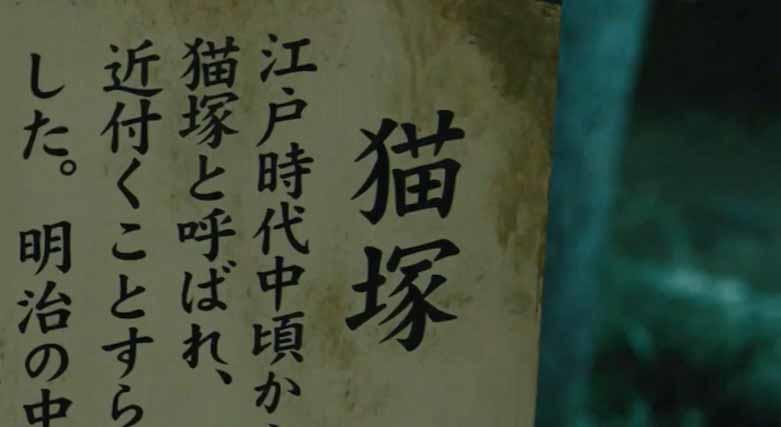 猫塚
江戸時代中頃か
猫塚と呼ばれ、
近付くことすら
した。 明治の中